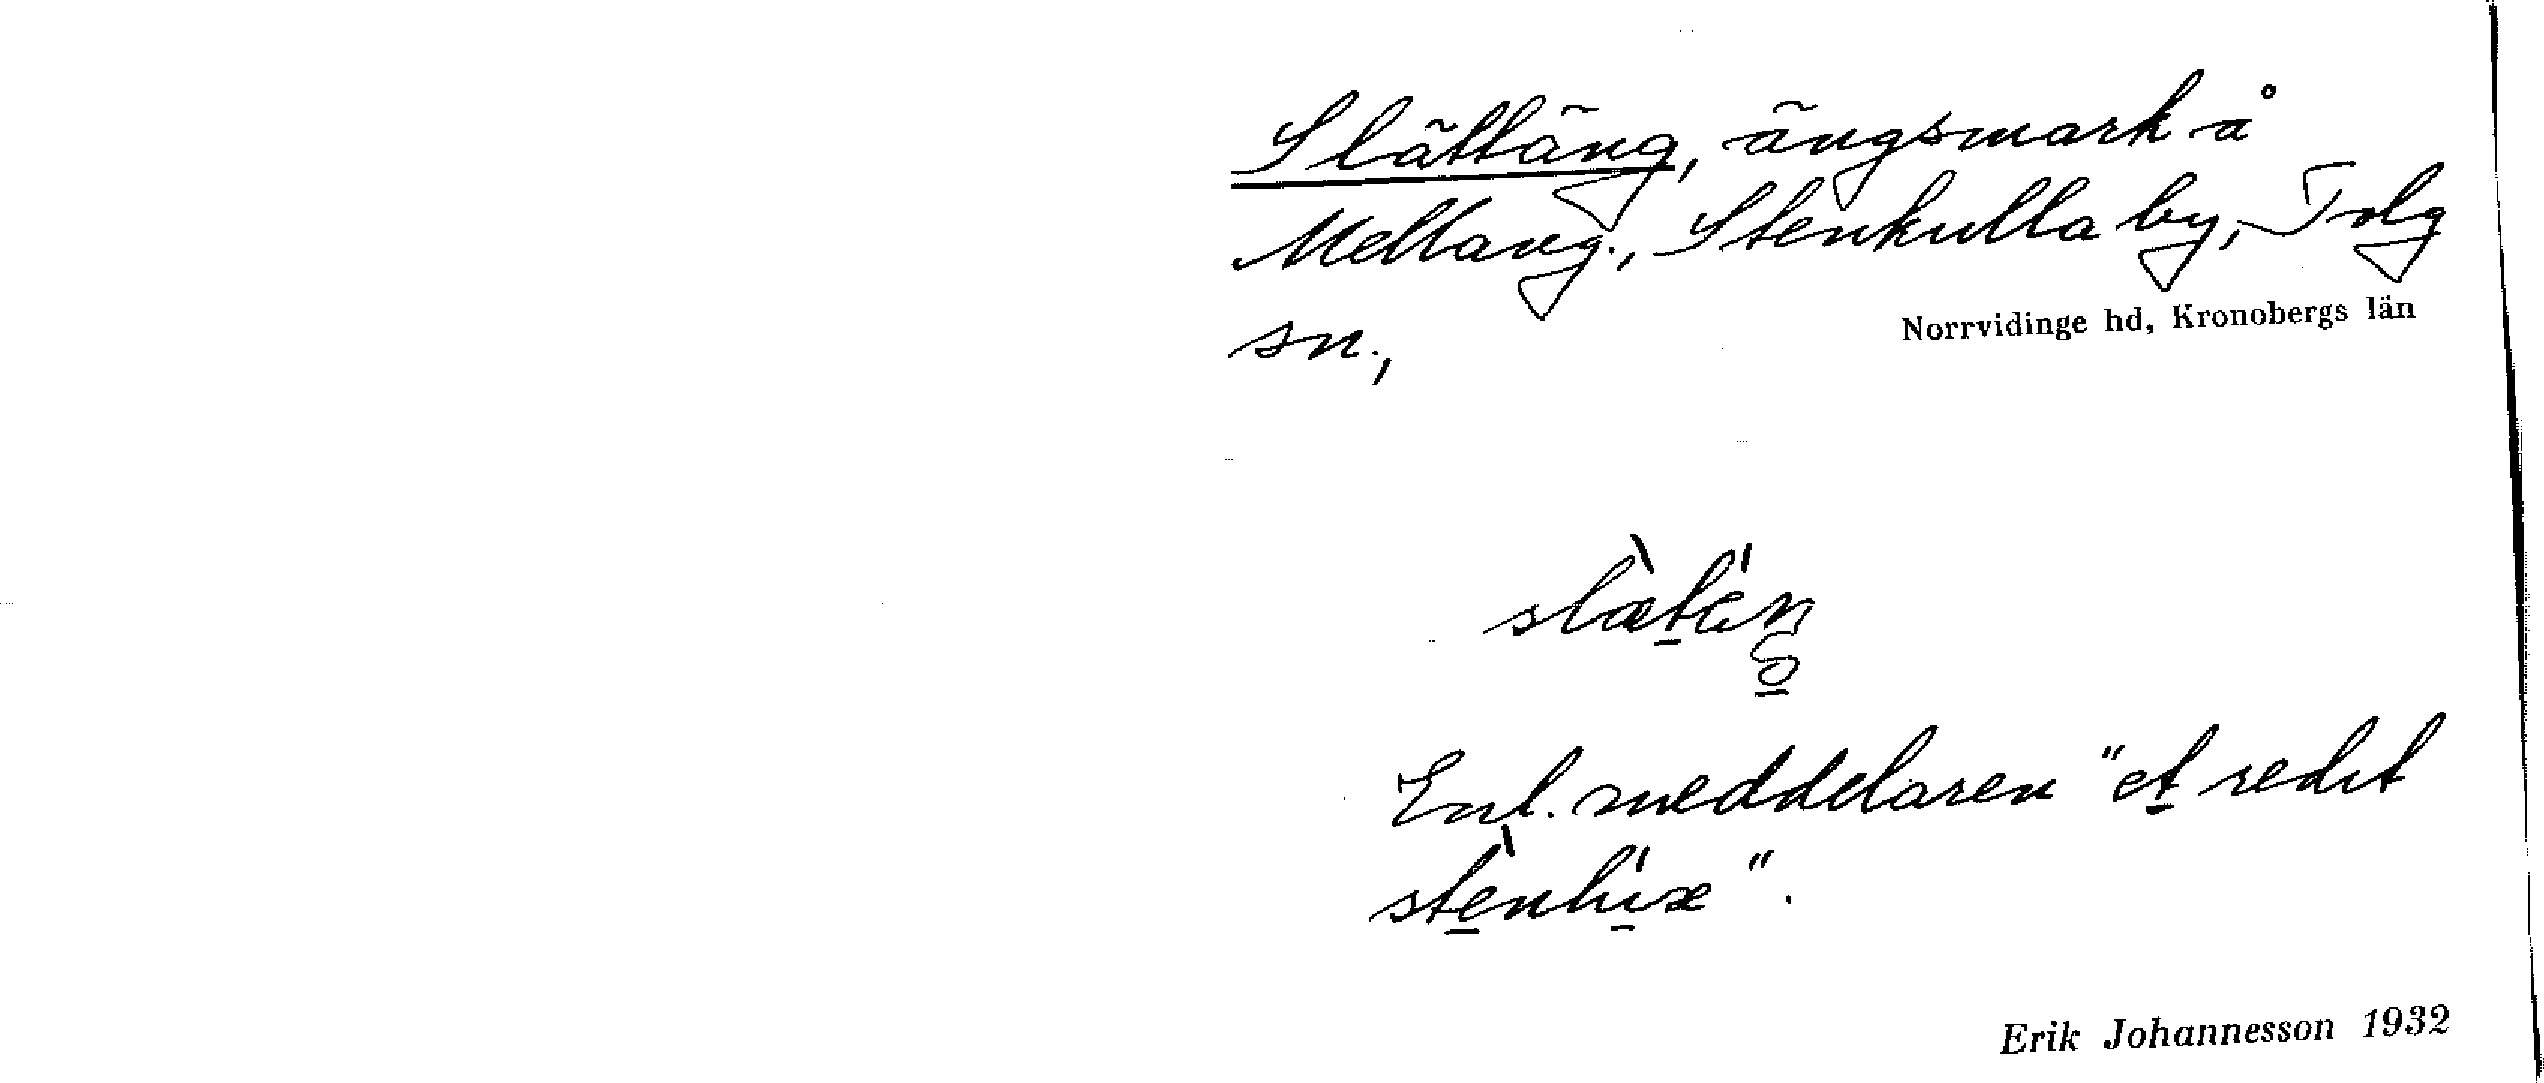 Slättäng, ängsmark å
Mellang., Stenkulla by, Tolg
sn.,
Norrvidinge hd, Kronobergs län
Enl. meddelaren "et redit
Erik Johannesson 1932